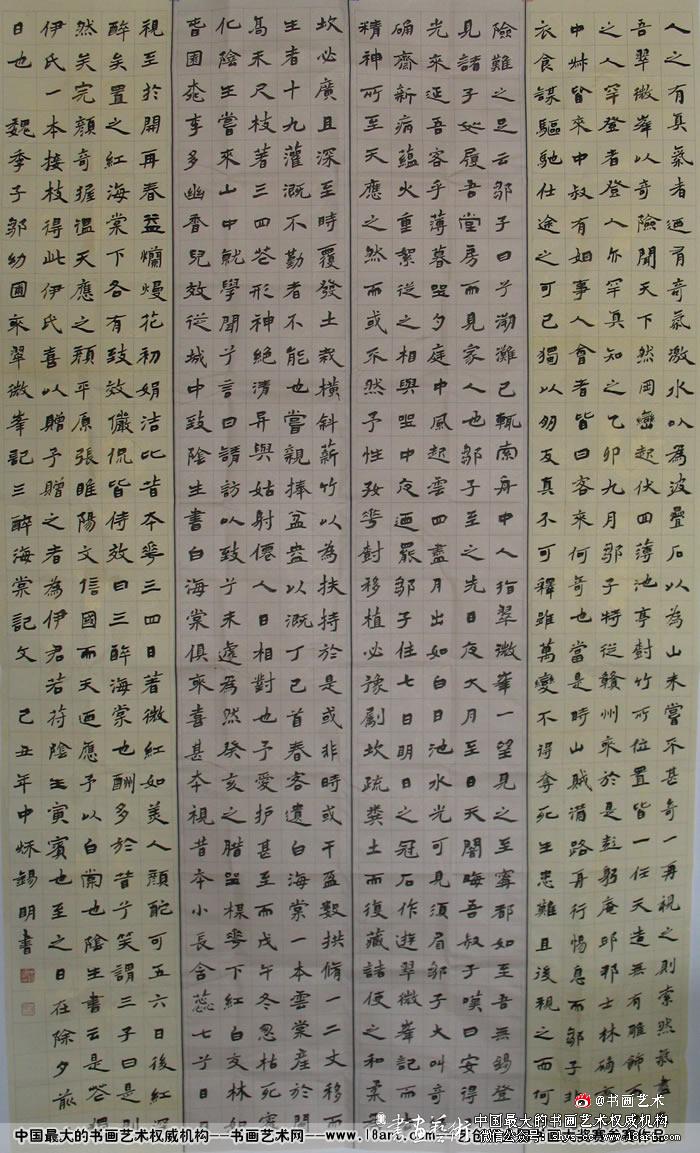 人之有真氣者迺有奇氣激水以為波疊石以為山未嘗不甚奇一再視之則索然氣盡
吾翠微峯以奇險聞天下然岡巒起伏四薄池亭對竹所位置皆一任天造無有雕飾而
之人罕登者登人亦罕真知之乙卯九月邹子特從贛州來於是彭躬庵邱邦士林确齋
中秌皆來中叔有姻事人會者皆曰客來何奇也當是時山賊滿路再行惕息而邹子非
衣食謀驅馳仕途之可已獨以朋友真不可釋雖萬變不得奪死生患難且後視之而何
險難之足云邹子曰兮潮灘已輒南舟中人指翠微峯一望見之至寧都如至吾無錫登
見諸子如履吾堂房而見家人也邹子至之先日夜大月至日天闇晦吾叔子嘆曰安得
光來延吾客乎薄暮坐夕庭中風起雲四盡月出如白日池水光可見須眉邹子大叫奇
确齋新病蘊火重絮從之相與坐中夜迺罷邹子住七日明日之冠石作遊翠微峯記而
精神所至天應之然而或不然予性孜花對移植必豫劚坎疏糞土而復藏詰使之和柔
坎必廣且深至時覆發土栽橫斜薪竹以為扶持於是或非時或干盈數拱脩一二丈移而
生者十九灌溉不勤者不能也嘗親捧盆盎以溉丁已首春客遺白海棠一本雲棠産於閩
高不尺枝著三四花形神絕清异與姑射僊人日相對也予愛护甚至而戊午冬忽枯死
化陰生嘗來山中就學聞兮言曰請訪以致兮未遠為然癸亥之腊坐楳花下紅白交林
園事多幽香兒效從城中致陰生書白海棠俱來喜甚本視昔本小長含蕊七兮日
視至於開再春益爛熳花初娟洁比昔本花三四日著微紅如美人顏酡可五六日後紅
醉矣置之紅海棠下各有致效儼侃皆侍效曰三醉海棠也酬多於昔兮笑謂三子曰是則
然矣完顏奇握溫天應之顏平原張睢陽文信國而天迺應予以白棠也陰生書云是花獨
伊氏一本接枝得此伊氏喜以贈予贈之者為伊君若苻陰生寅賓也至之日在除夕前
日也 魏季子邹幼圃來翠微峯記三醉海棠記文 己丑年中秌錫明書
@书画艺术
中国最大的书画艺术权威机构---书画艺术网---www.18art.com
中国最大的书画艺术权威机构